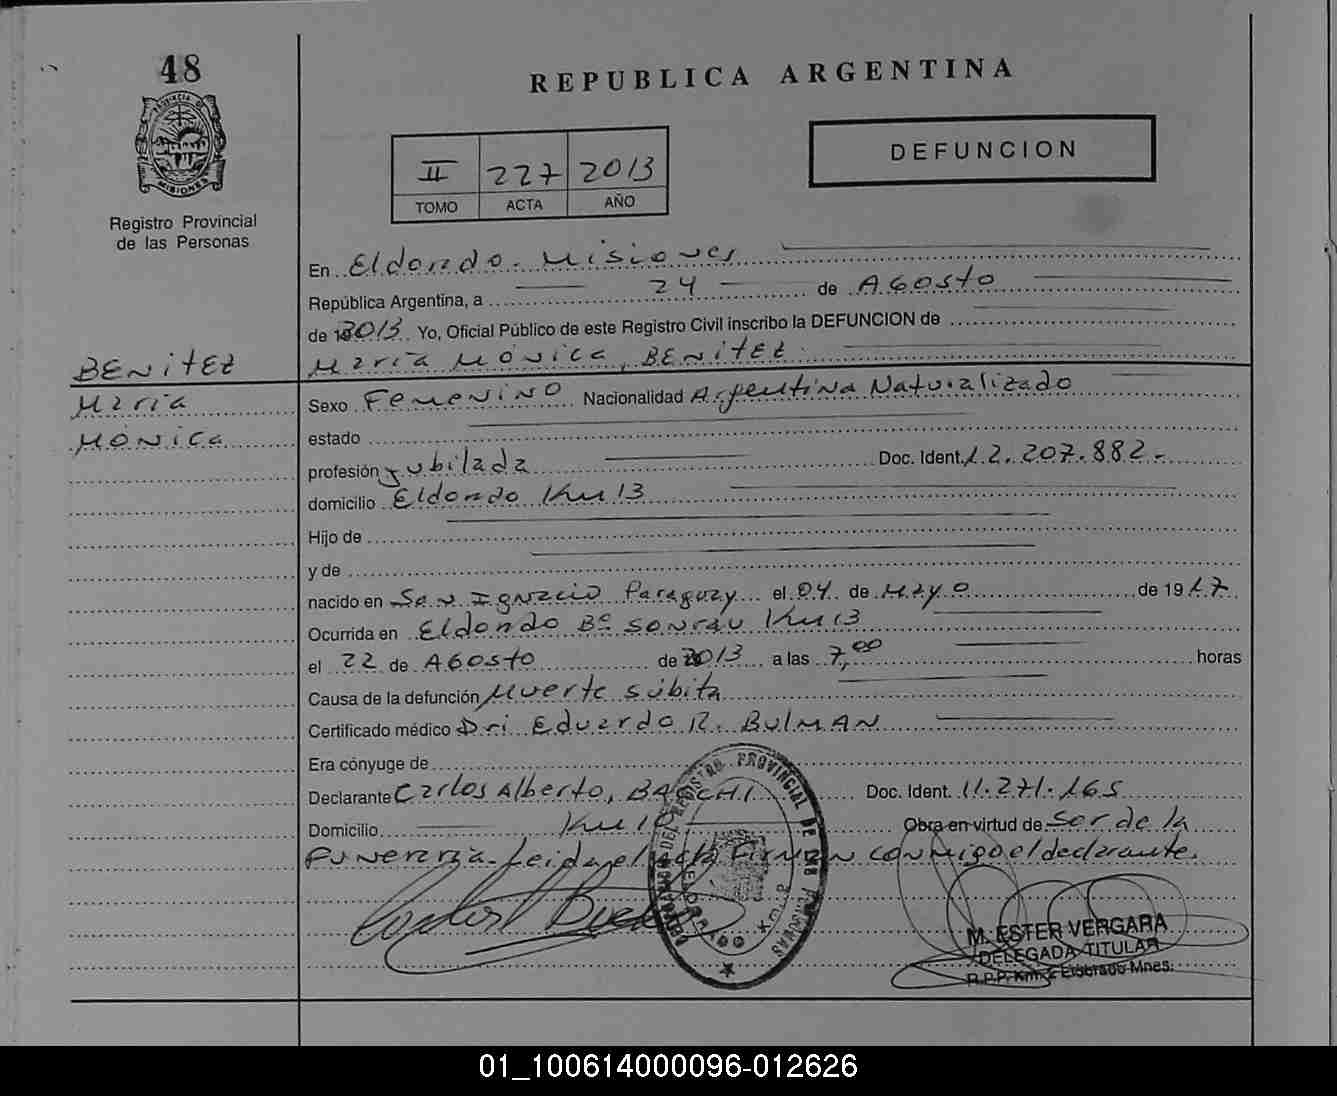 48
REPUBLICA ARGENTINA
PROVINCIA DE MISIONES
Registro Provincial
de las Personas
II 227 2013
TOMO ACTA AÑO
DEFUNCION
En Eldorado. Misiones
República Argentina, a 24 de Agosto
de 2013. Yo, Oficial Público de este Registro Civil inscribo la DEFUNCION de
María Mónica, BENitEZ
BENitEZ
María
MÓNICA
Sexo Femenino Nacionalidad Argentina Naturalizado
estado
profesión Jubilada Doc. Ident. 12.207.882-
domicilio Eldorado Km 13
Hijo de
y de
nacido en San Ignacio Paraguay el 04 de Mayo de 1917
Ocurrida en Eldorado Bº Km 13
el 22 de Agosto de 2013 a las 7,00 horas
Causa de la defunción Muerte súbita
Certificado médico Dr. Eduardo R. BulMAN
Era cónyuge de
Declarante Carlos Alberto, Doc. Ident. 11.271.165
Domicilio Km 10 Obra en virtud de Ser de la
Funeraria. Leida el acta Firman conmigo el declarante.
REGISTRO PROVINCIAL DE LAS PERSONAS
ELDORADO
M. ESTER VERGARA
DELEGADA TITULAR
R.P.P. Km. Eldorado Mnes.
01_100614000096-012626